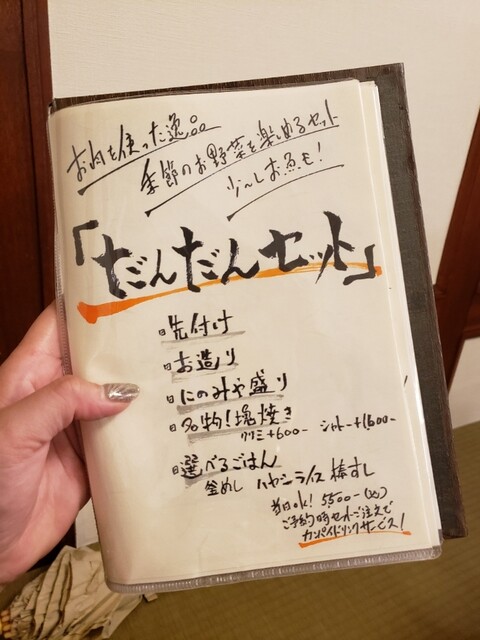 お肉を使った逸品
季節のお野菜を楽しめるセット
少〜しお魚も!
「だんだんセット」
先付け
お造り
にのみや盛り
名物!塊焼き
クリミ+600- シャトー+1600-
選べるごはん
釜めし ハヤシライス 棒すし
当日ok! 5,500-(込)
ご予約時セットご注文で
カンパイドリンクサービス!